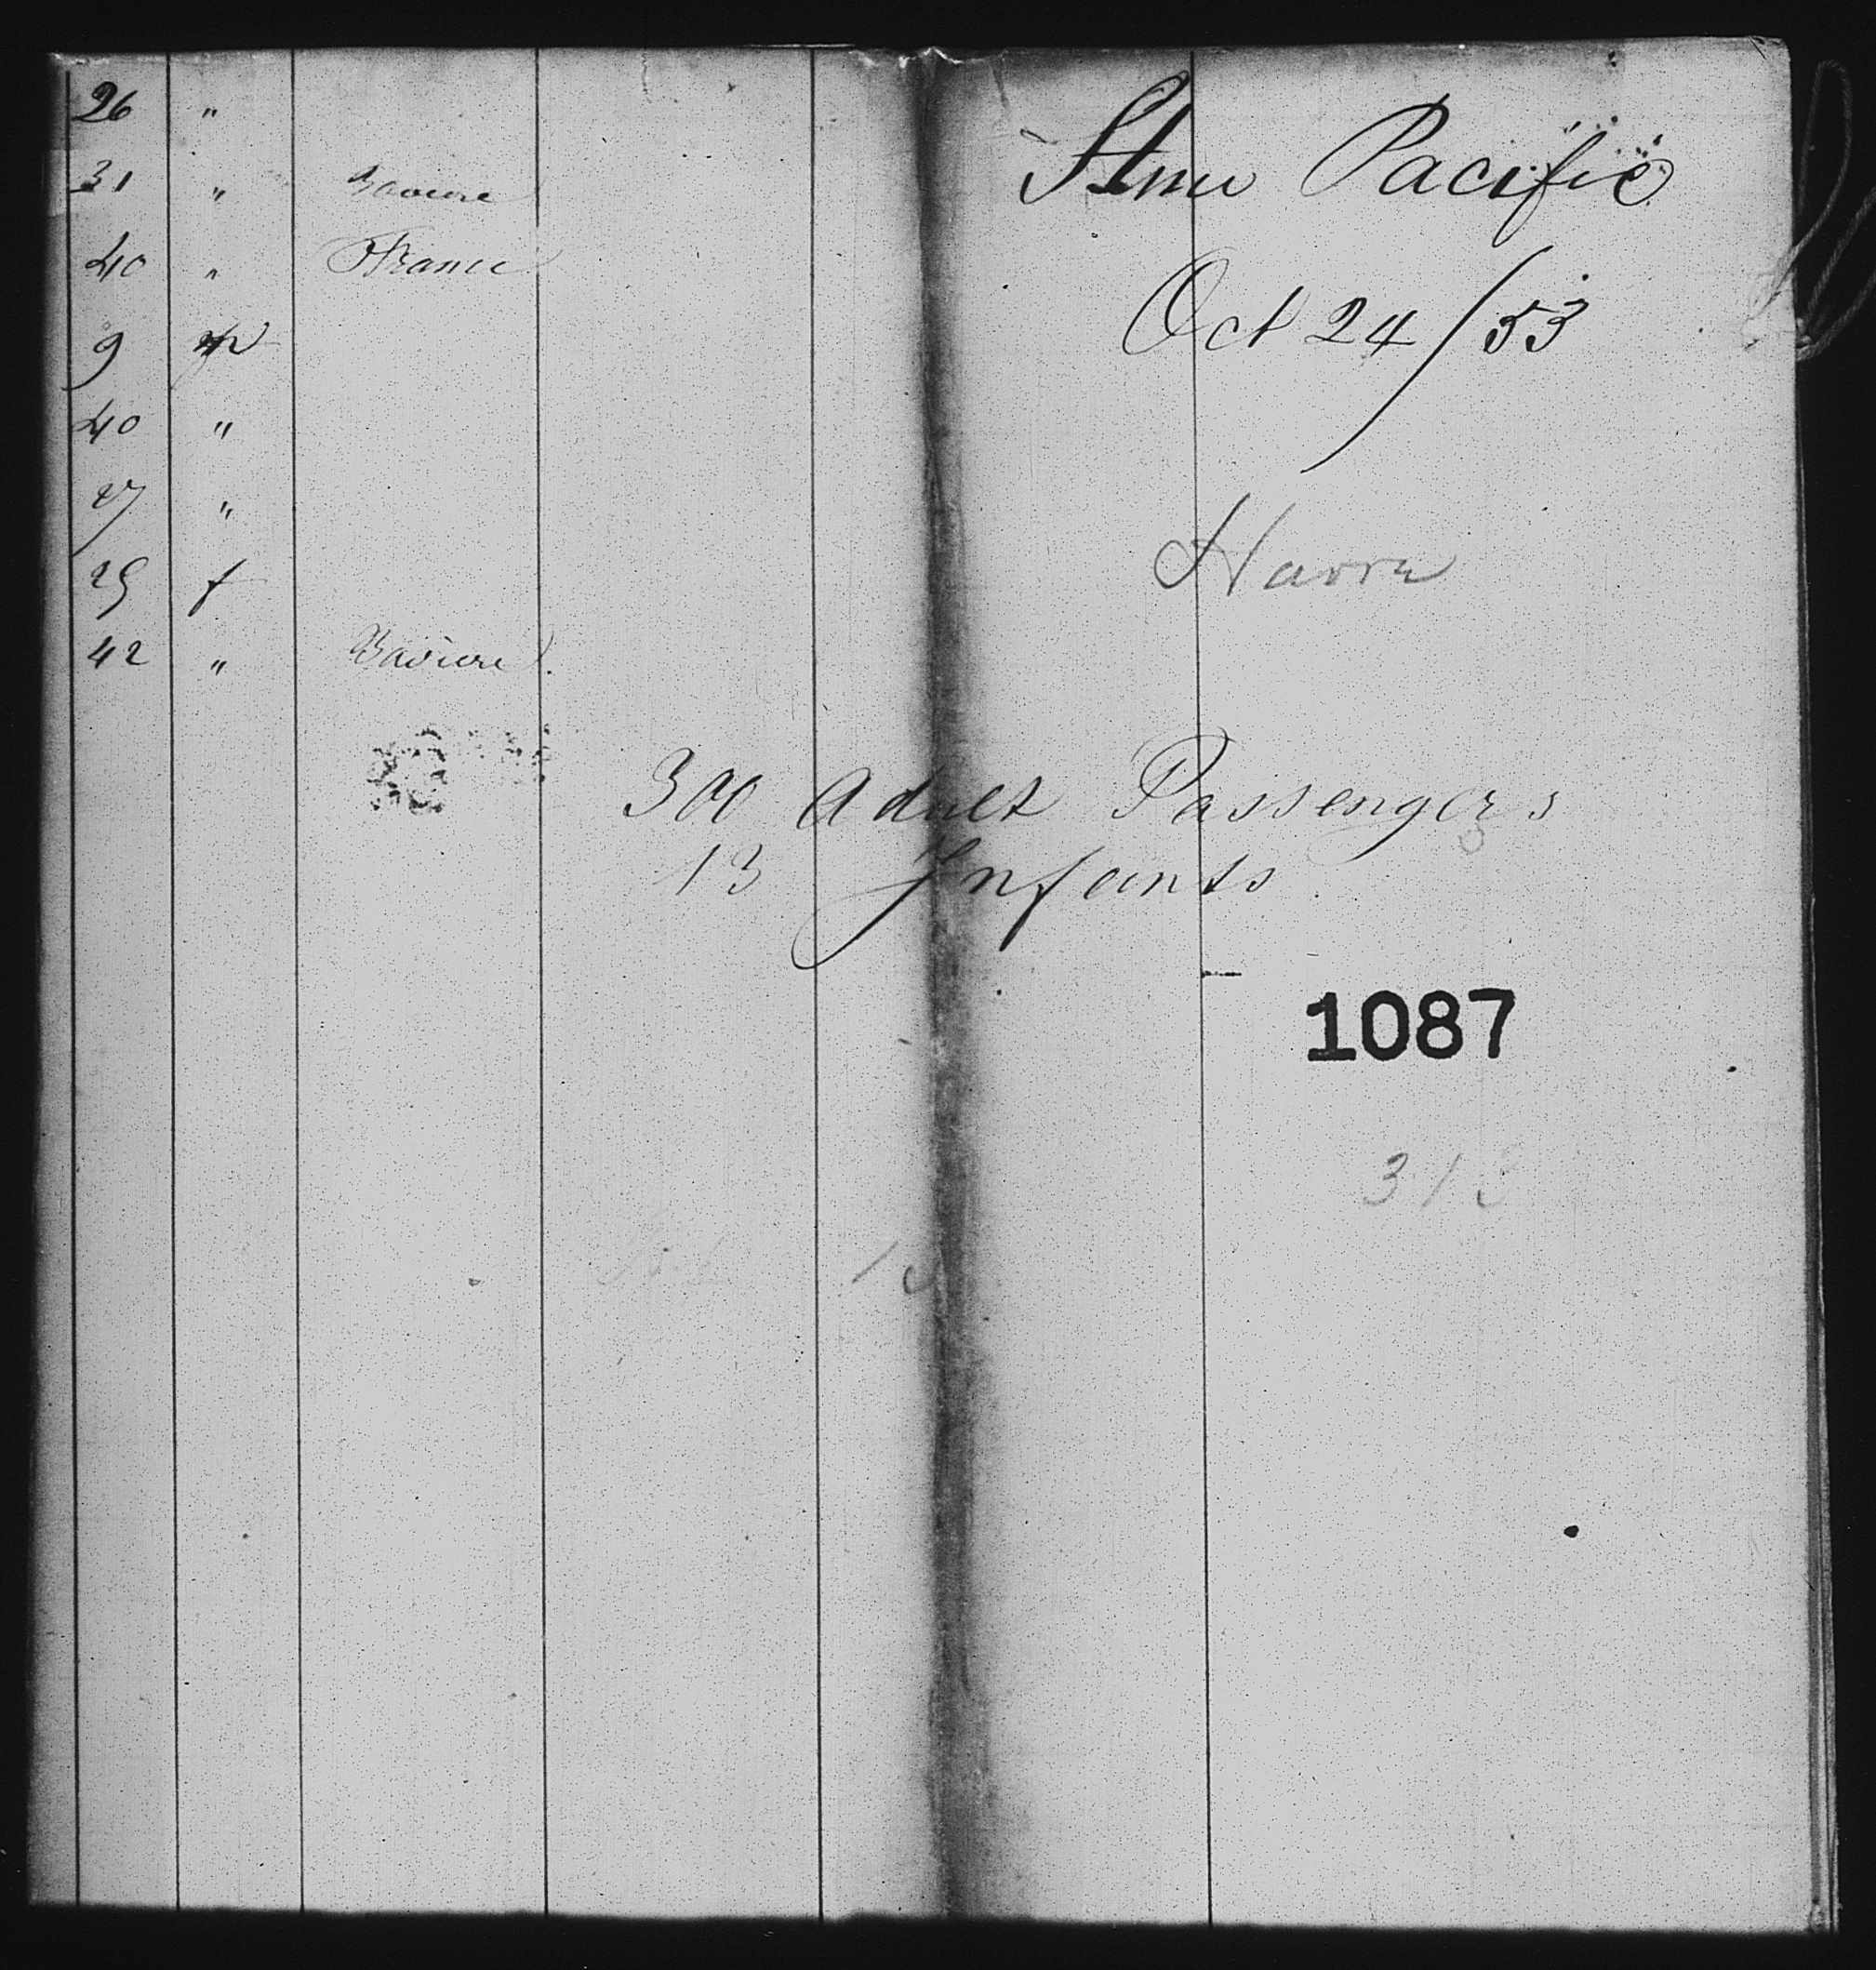 26 "
31 " Baviere
40 " France
9 m
40 "
27 "
25 f
42 " Baviere
Stmr Pacific
Oct 24/53
Havre
300 Adult Passengers
13 Infants
1087
313